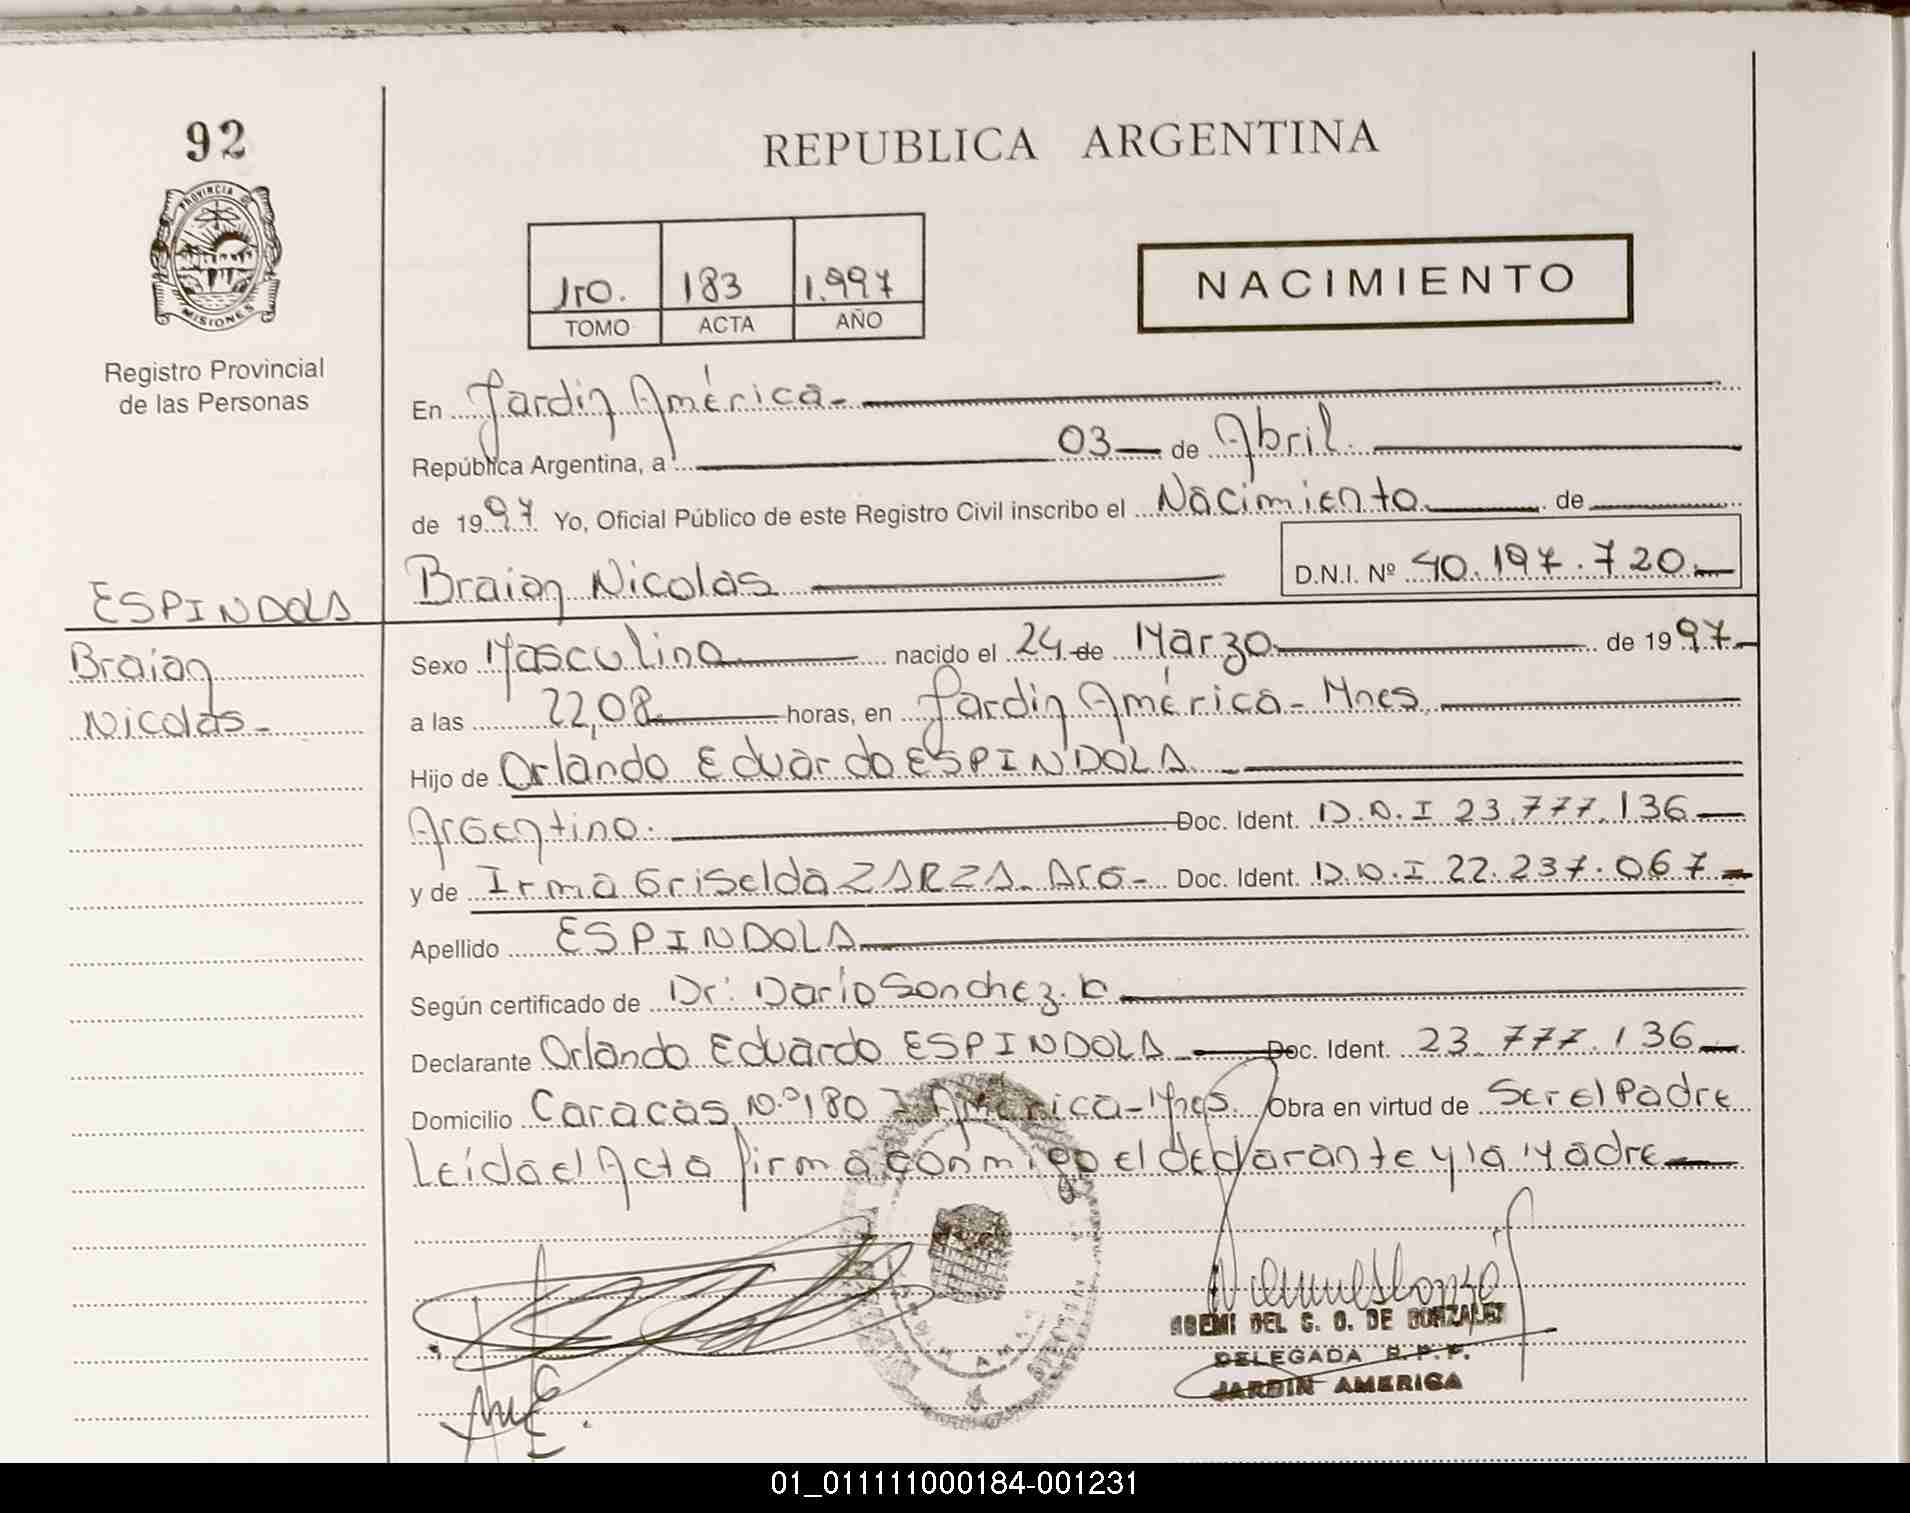 92
PROVINCIA DE
MISIONES
Registro Provincial
de las Personas
ESPINDOLA
Braian
Nicolas-
REPUBLICA ARGENTINA
1ro. 183 1.997
TOMO ACTA AÑO
NACIMIENTO
En Jardin América-
República Argentina, a 03 de Abril.
de 1997 Yo, Oficial Público de este Registro Civil inscribo el Nacimiento de
Braian Nicolas D.N.I. Nº 40.197.720.-
Sexo Masculino nacido el 24 de Marzo de 1997-
a las 22,08 horas, en Jardin América- Mnes.
Hijo de Orlando Eduardo ESPINDOLA.
Argentino. Doc. Ident. D.N.I 23.777.136-
y de Irma Griselda ZARZA. Arg- Doc. Ident. D.N.I 22.237.067-
Apellido ESPINDOLA
Según certificado de Dr. Dario Sanchez.
Declarante Orlando Eduardo ESPINDOLA Doc. Ident. 23.777.136-
Domicilio Caracas N.º 180 J América-Mnes. Obra en virtud de Ser el Padre
Leída el Acta firma conmigo el declarante y la Madre-
NOEMI DEL C. O. DE GONZALEZ
DELEGADA R.P.P.
JARDIN AMERICA
01_011111000184-001231